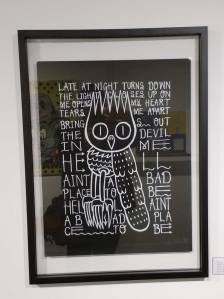 LATE AT NIGHT TURNS DOWN
THE LIGH OSES UP ON
ME OPENS MY HEART
TEARS ME APART
BRING S OUT
THE DEVIL
IN ME
HE LL
AINT A BAD
PLACE TO BE
HEL L AINT
A B AD PLA
CE TO BE